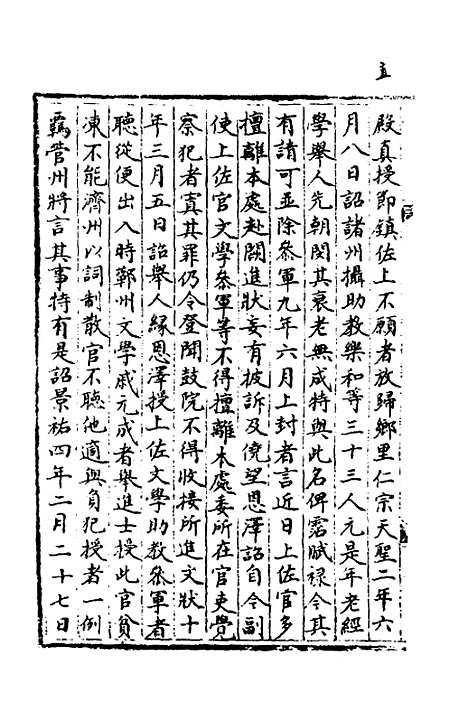 五
殿真授節鎮佐上不願者放歸鄉里仁宗天聖二年六
月八日詔諸州攝助教樂和等三十三人元是年老經
學舉人先朝閔其衰老無成特與此名俾霑賦祿今其
有請可並除叅軍九年六月上封者言近日上佐官多
擅離本處赴闕進狀妄有披訴及僥望恩澤詔自今副
使上佐官文學叅軍等不得擅離本處委所在官吏覺
察犯者寘其罪仍令登聞鼓院不得收接所進文狀十
年三月五日詔舉人緣恩澤授上佐文學助教叅軍者
聽從便出入時鄆州文學戚元成者舉進士授此官貧
凍不能濟州以詞制散官不聽他適與負犯授者一例
羈管州將言其事特有是詔景祐四年二月二十七日